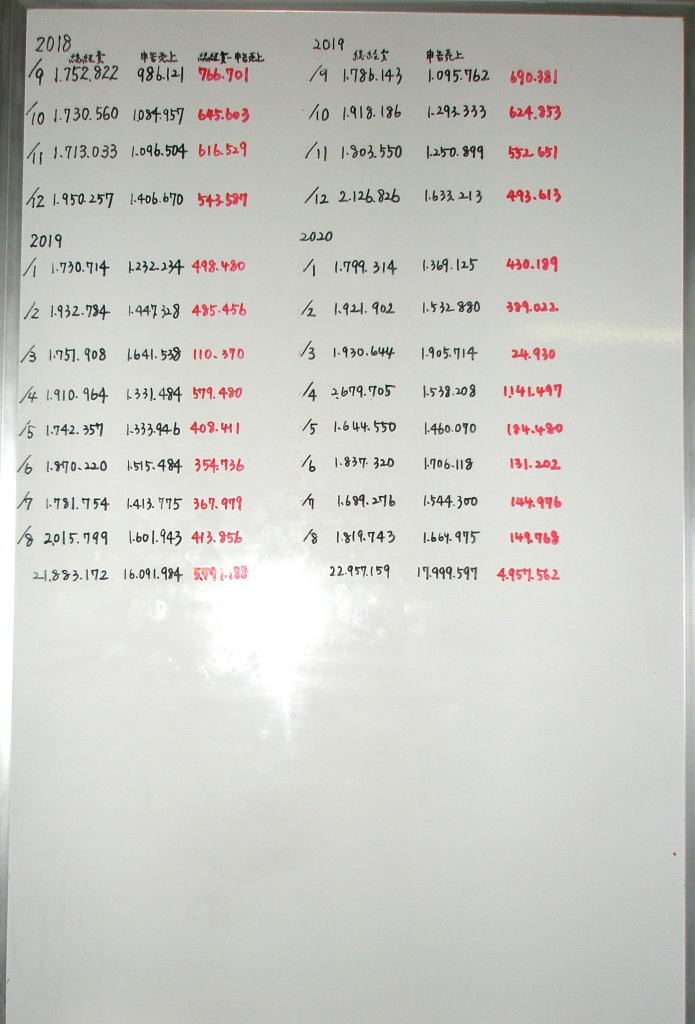 2018
総経費 申告売上 総経費-申告売上
/9 1.752.822 986.121 766.701
/10 1.730.560 1.084.957 645.603
/11 1.713.033 1.096.504 616.529
/12 1.950.257 1.406.670 543.587
2019
/1 1.730.714 1.232.234 498.480
/2 1.932.784 1.447.328 485.456
/3 1.751.908 1.641.538 110.370
/4 1.910.964 1.331.484 579.480
/5 1.742.357 1.333.946 408.411
/6 1.870.220 1.515.484 354.736
/7 1.781.754 1.413.775 367.979
/8 2.015.799 1.601.943 413.856
21.883.172 16.091.984 5.791.188
2019
総経費 申告売上
/9 1.786.143 1.095.762 690.381
/10 1.918.186 1.293.333 624.853
/11 1.803.550 1.250.899 552.651
/12 2.126.826 1.633.213 493.613
2020
/1 1.799.314 1.369.125 430.189
/2 1.921.902 1.532.880 389.022
/3 1.930.644 1.905.714 24.930
/4 2.679.705 1.538.208 1.141.497
/5 1.644.550 1.460.070 184.480
/6 1.837.320 1.706.118 131.202
/7 1.689.276 1.544.300 144.976
/8 1.819.743 1.669.975 149.768
22.957.159 17.999.597 4.957.562